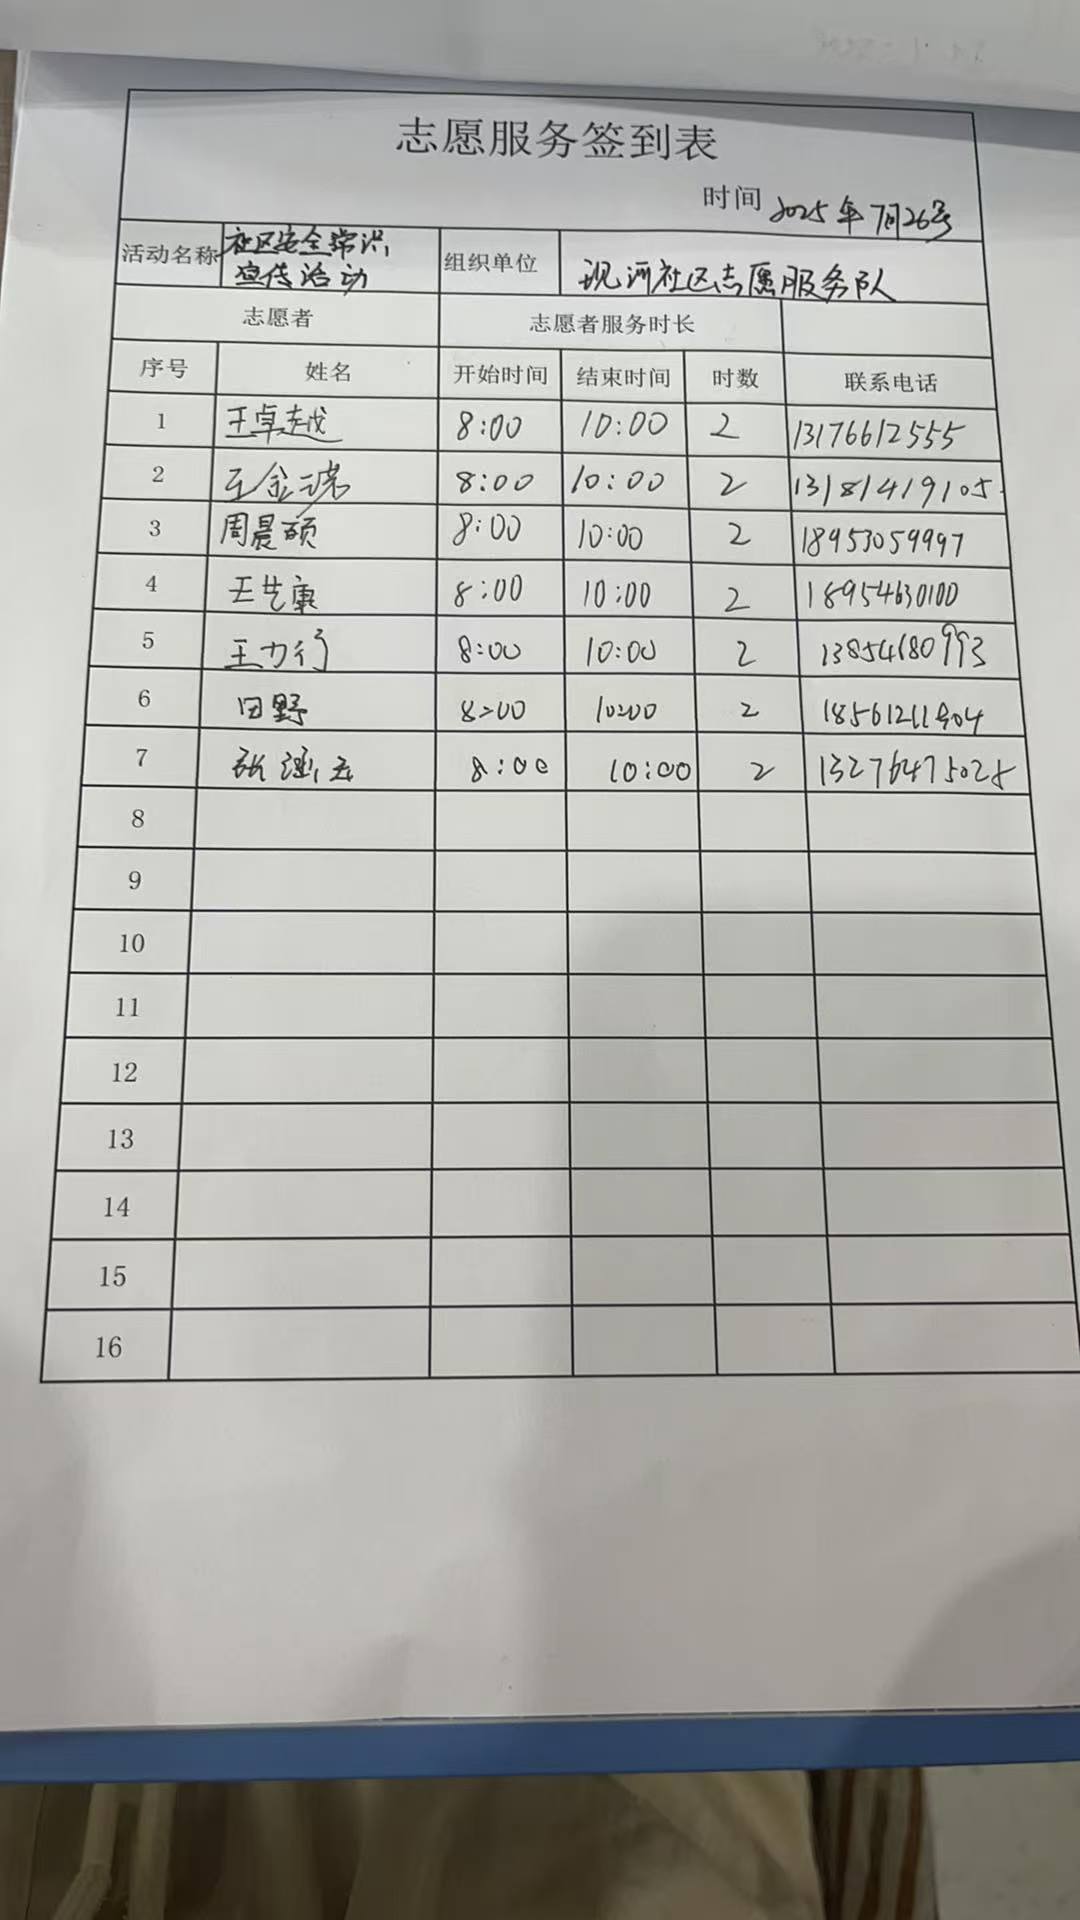 志愿服务签到表
时间 2025年7月26号
活动名称 社区安全常识宣传活动 组织单位 现河社区志愿服务队
志愿者 志愿者服务时长
序号 姓名 开始时间 结束时间 时数 联系电话
1 王卓越 8:00 10:00 2 13176612555
2 王金瑞 8:00 10:00 2 13181419105
3 周晨硕 8:00 10:00 2 18953059997
4 王艺康 8:00 10:00 2 18954630100
5 王力行 8:00 10:00 2 13854680993
6 田野 8:00 10:00 2 18561211904
7 张涵云 8:00 10:00 2 13276475028
8
9
10
11
12
13
14
15
16